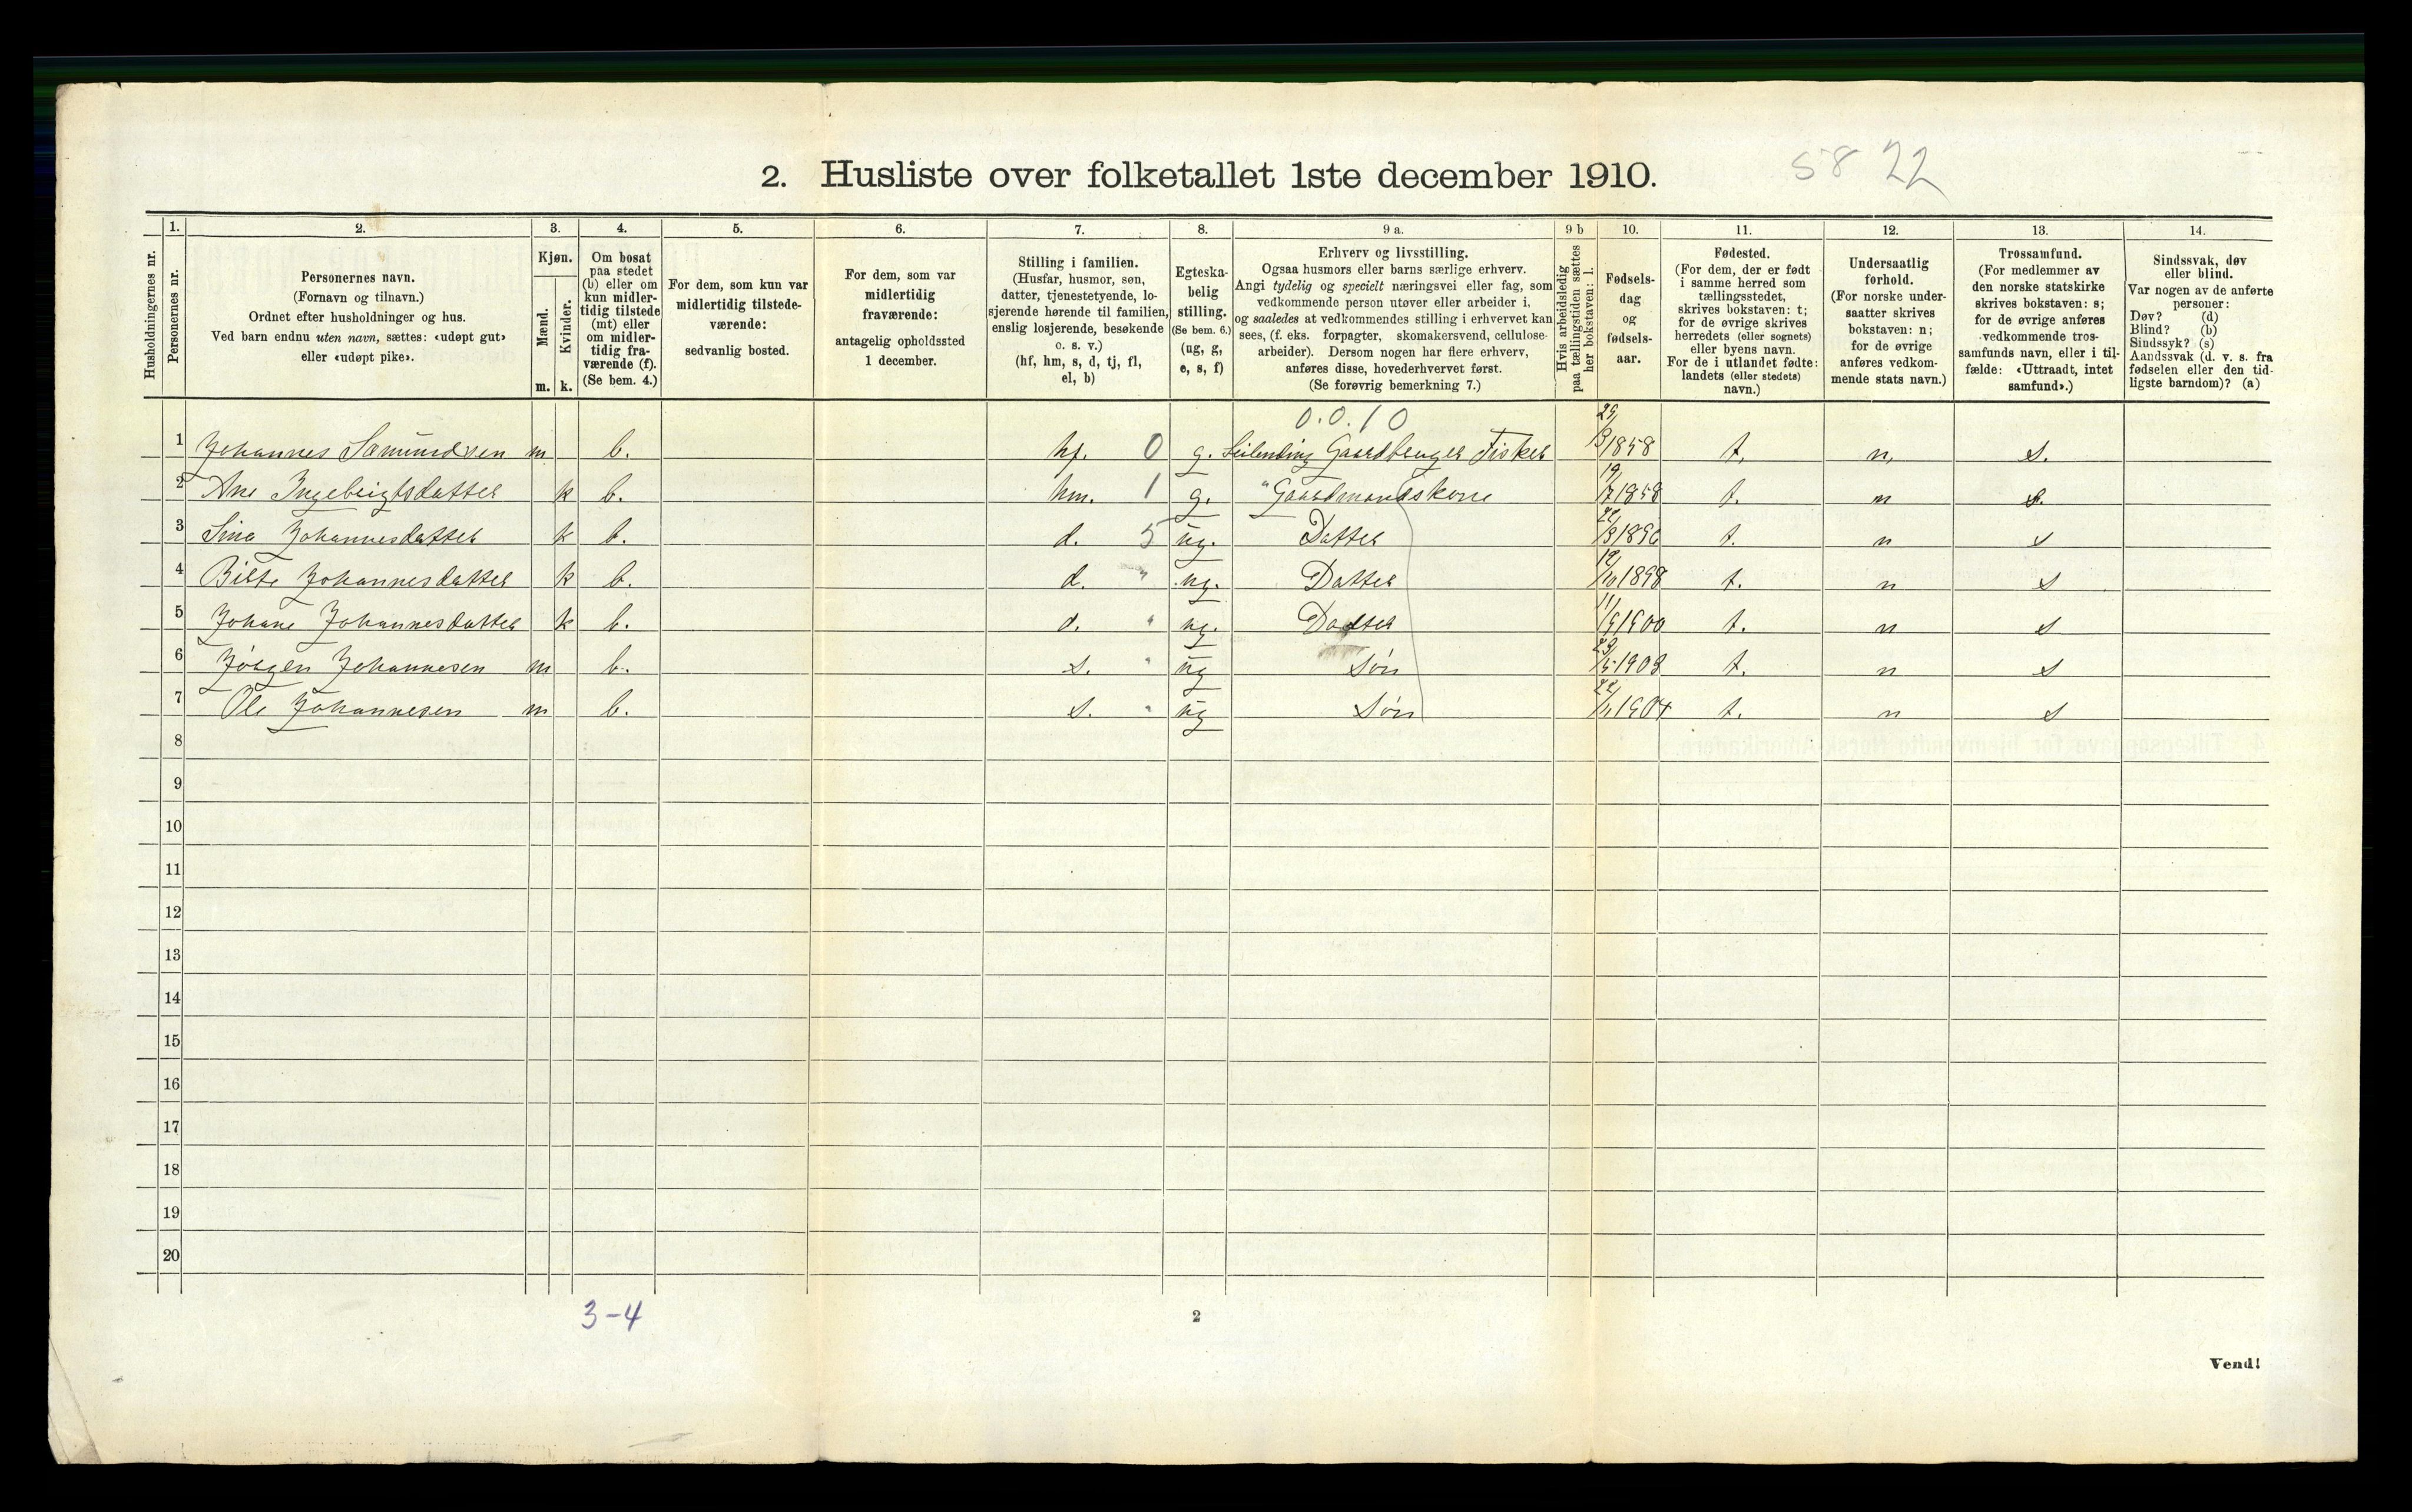 2. Husliste over folketallet 1ste december 1910.
58 22
Husholdningernes nr.
1. Personernes nr.
2. Personernes navn. (Fornavn og tilnavn.) Ordnet efter husholdninger og hus. Ved barn endnu uten navn, sættes: «udøpt gut» eller «udøpt pike».
3. Kjøn. Mænd. m. Kvinder. k.
4. Om bosat paa stedet (b) eller om kun midlertidig tilstede (mt) eller om midlertidig fraværende (f). (Se bem. 4.)
5. For dem, som kun var midlertidig tilstedeværende: sedvanlig bosted.
6. For dem, som var midlertidig fraværende: antagelig opholdssted 1 december.
7. Stilling i familien. (Husfar, husmor, søn, datter, tjenestetyende, losjerende hørende til familien, enslig losjerende, besøkende o. s. v.) (hf, hm, s, d, tj, fl, el, b)
8. Egteskabelig stilling. (Se bem. 6.) (ug, g, e, s, f)
9 a. Erhverv og livsstilling. Ogsaa husmors eller barns særlige erhverv. Angi tydelig og specielt næringsvei eller fag, som vedkommende person utøver eller arbeider i, og saaledes at vedkommendes stilling i erhvervet kan sees, (f. eks. forpagter, skomakersvend, cellulosearbeider). Dersom nogen har flere erhverv, anføres disse, hovederhvervet først. (Se forøvrig bemerkning 7.)
9 b Hvis arbeidsledig paa tællingstiden sættes her bokstaven: l.
10. Fødselsdag og fødselsaar.
11. Fødested. (For dem, der er født i samme herred som tællingsstedet, skrives bokstaven: t; for de øvrige skrives herredets (eller sognets) eller byens navn. For de i utlandet fødte: landets (eller stedets) navn.)
12. Undersaatlig forhold. (For norske undersaatter skrives bokstaven: n; for de øvrige anføres vedkommende stats navn.)
13. Trossamfund. (For medlemmer av den norske statskirke skrives bokstaven: s; for de øvrige anføres vedkommende trossamfunds navn, eller i tilfælde: «Uttraadt, intet samfund».)
14. Sindssvak, døv eller blind. Var nogen av de anførte personer: Døv? (d) Blind? (b) Sindssyk? (s) Aandssvak (d. v. s. fra fødselen eller den tidligste barndom)? (a)
0.0.10
1 Johannes Samundsen m b. hf. 0 g. Leilending Gaardbruger Fisker 1858 t. n. s.
2 Ane Ingebrigtsdatter k b. hm. 1 g. " Gaardmandskone 19/7 1858 t. n s.
3 Sina Johannesdatter k b. d. 5 ug. Datter t. n s
4 Birte Johannesdatter k b. d. " ug. Datter 19/10 1898 t. n s
5 Johane Johannesdatter k b. d. " ug. Datter 11/9 1900 t. n s
6 Jörgen Johannesen m b. s. " ug Sön 23/5 1903 t. n s
7 Ole Johannesen m b. s. " ug Sön 22/11 1904 t. n s
8
9
10
11
12
13
14
15
16
17
18
19
20
3-4
2
Vend!